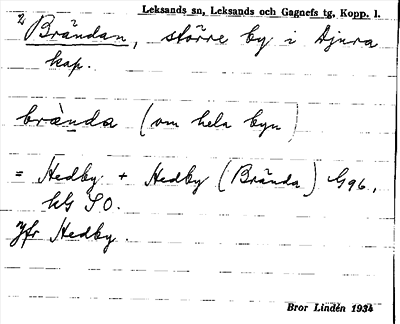 Leksands sn, Leksands och Gagnefs tg, Kopp. l.
2) Brändan, större by i Djura
kap.
brà̤nda (om hela byn)
= Hedby + Hedby (Brända) G96,
hG SO.
Jfr Hedby.
Bror Lindén 1934